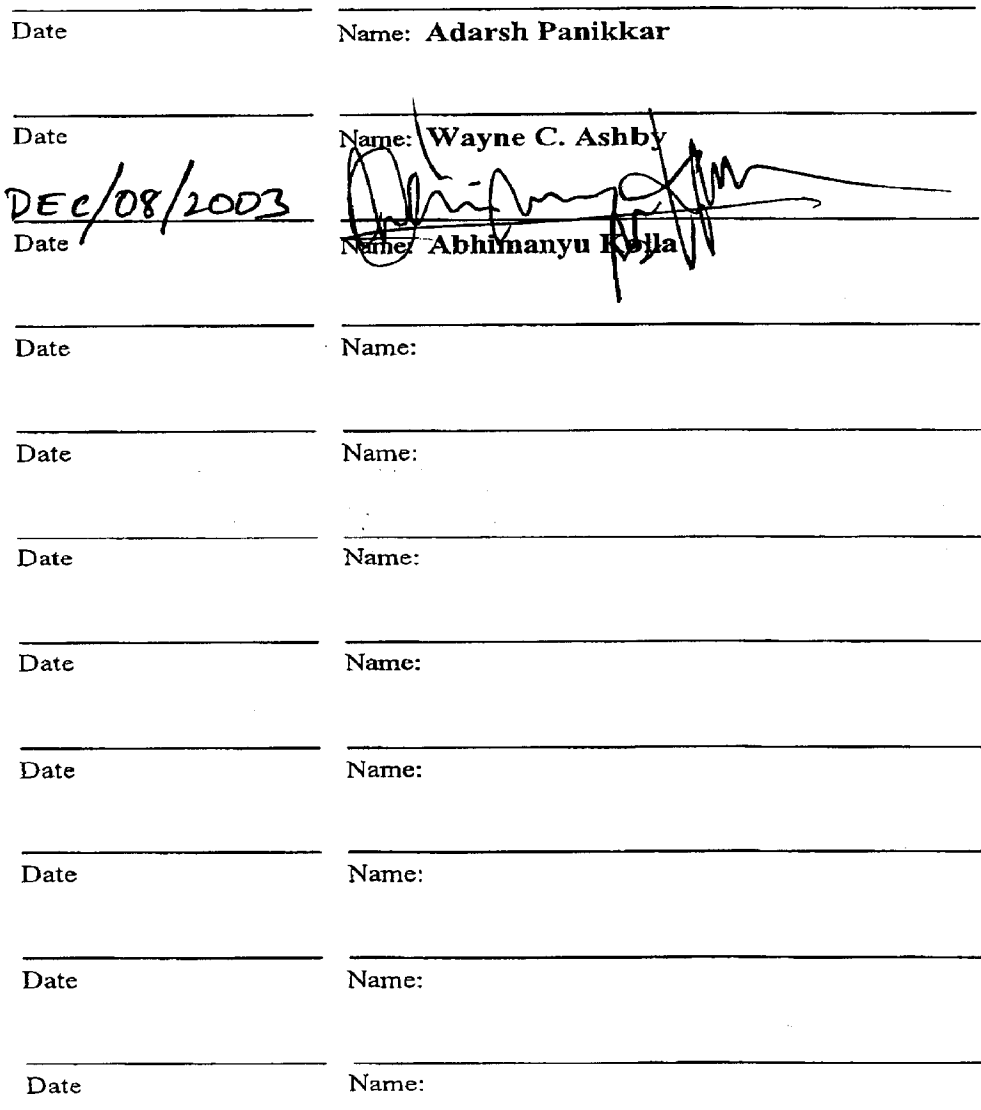 Date Name: Adarsh Panikkar
Date Name: Wayne C. Ashby
DEC/08/2003
Date Name: Abhimanyu Kolla
Date Name:
Date Name:
Date Name:
Date Name:
Date Name:
Date Name:
Date Name:
Date Name: